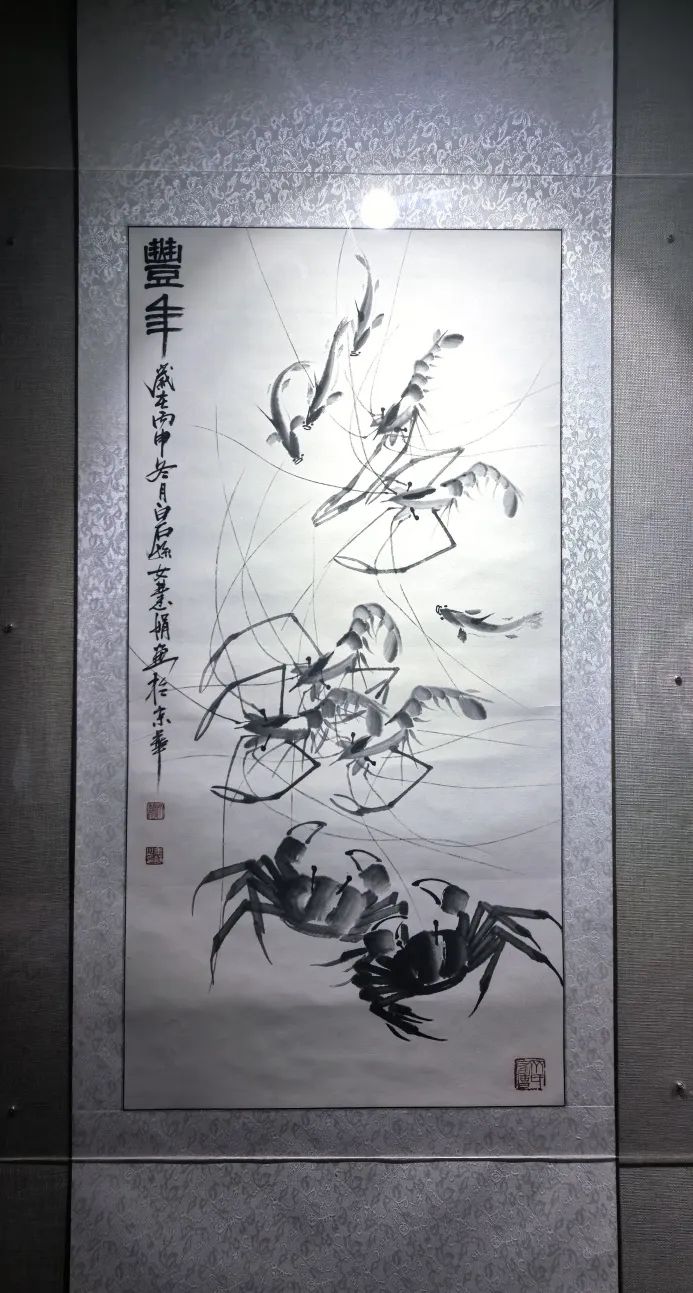 豐年
歲在丙申冬月白石孫女慧娟畫於京華